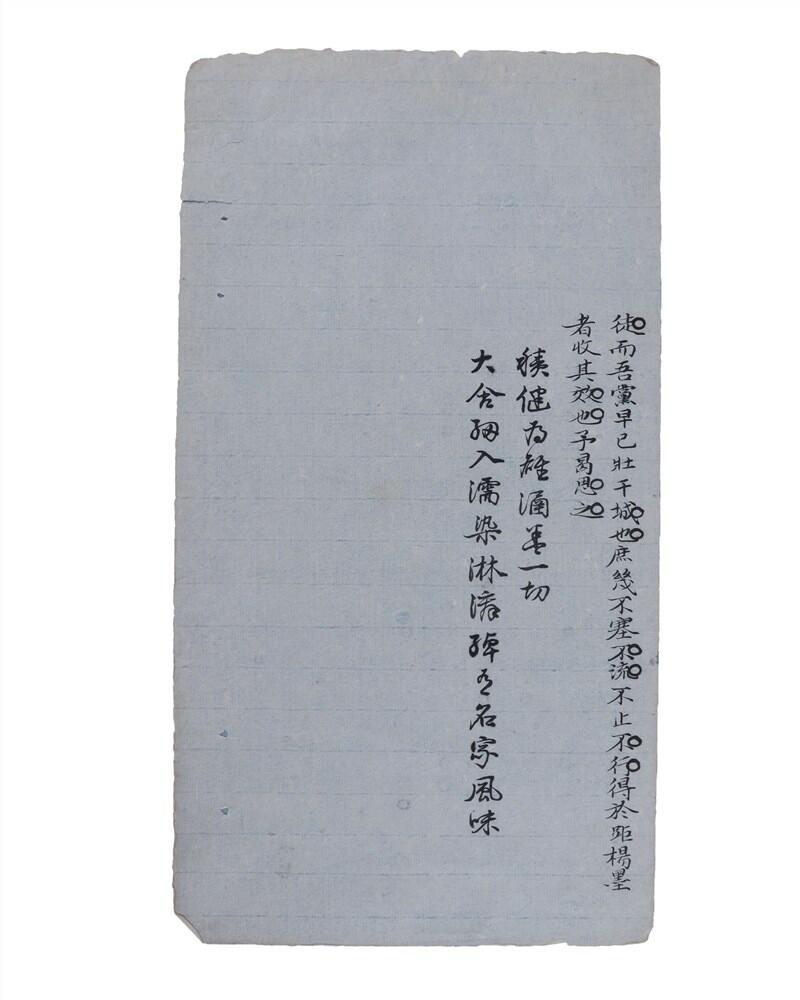 徒而吾黨早已壯干城也庶幾不塞不流不止不行得於距楊墨
者收其效也予曷思之
健為雄涵蓋一切
大含細入濡染淋漓綽有名家風味